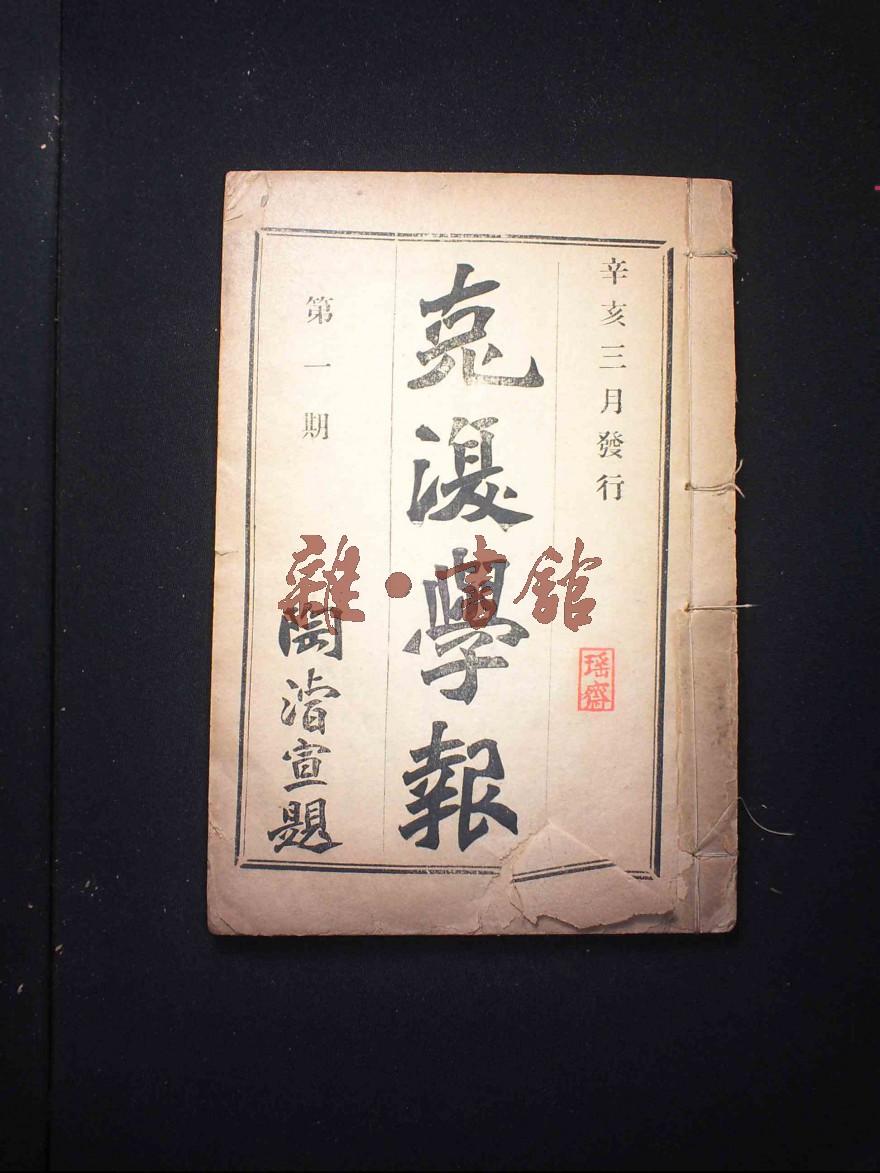 辛亥三月發行
克復學報
第一期
陶濬宣題
瑶齋
雜·書館